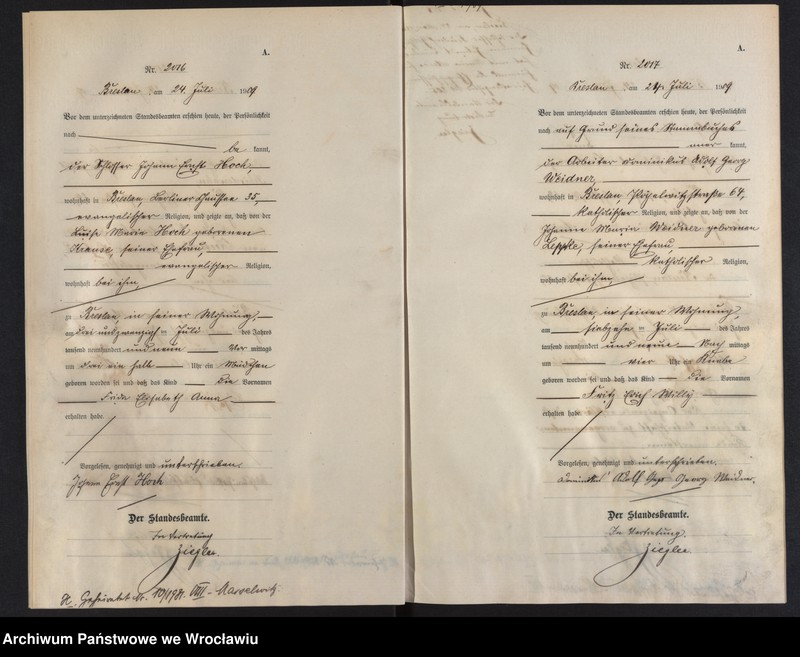 A.
Nr. 2016
Breslau, am 24. Juli 1909
Vor dem unterzeichneten Standesbeamten erschien heute, der Persönlichkeit
nach
be kannt,
der Schlosser Johann Ernst Hoch,
wohnhaft in Breslau, Berliner Chaussee 35,
evangelischer Religion, und zeigte an, daß von der
Luise Maria Hoch geborenen
Krause, seiner Ehefrau,
evangelischer Religion,
wohnhaft bei ihm,
zu Breslau in seiner Wohnung,
am drei und zwanzigsten Juli des Jahres
tausend neunhundert und neun Vor mittags
um drei ein halb Uhr ein Mädchen
geboren worden sei und daß das Kind die Vornamen
Frida Elisabeth Anna
erhalten habe.
Vorgelesen, genehmigt und unterschrieben.
Johann Ernst Hoch
Der Standesbeamte.
In Vertretung
Ziegler
Geheiratet Nr.
A.
Nr. 2017
Breslau, am 24. Juli 1909
Vor dem unterzeichneten Standesbeamten erschien heute, der Persönlichkeit
nach auf Grund seines Stammbuches
aner kannt,
der Arbeiter Dominikus Adolf Georg
Weidner,
wohnhaft in Breslau, 64,
katholischer Religion, und zeigte an, daß von der
Johanna Maria Weidner geborenen
seiner Ehefrau,
katholischer Religion,
wohnhaft bei ihm,
zu Breslau, in seiner Wohnung,
am Juli des Jahres
tausend neunhundert und neun Nach mittags
um vier Uhr ein Knabe
geboren worden sei und daß das Kind die Vornamen
Fritz Erich Willy
erhalten habe.
Vorgelesen, genehmigt und unterschrieben.
Dominikus Adolf Georg Weidner.
Der Standesbeamte.
In Vertretung.
Ziegler
Archiwum Państwowe we Wrocławiu